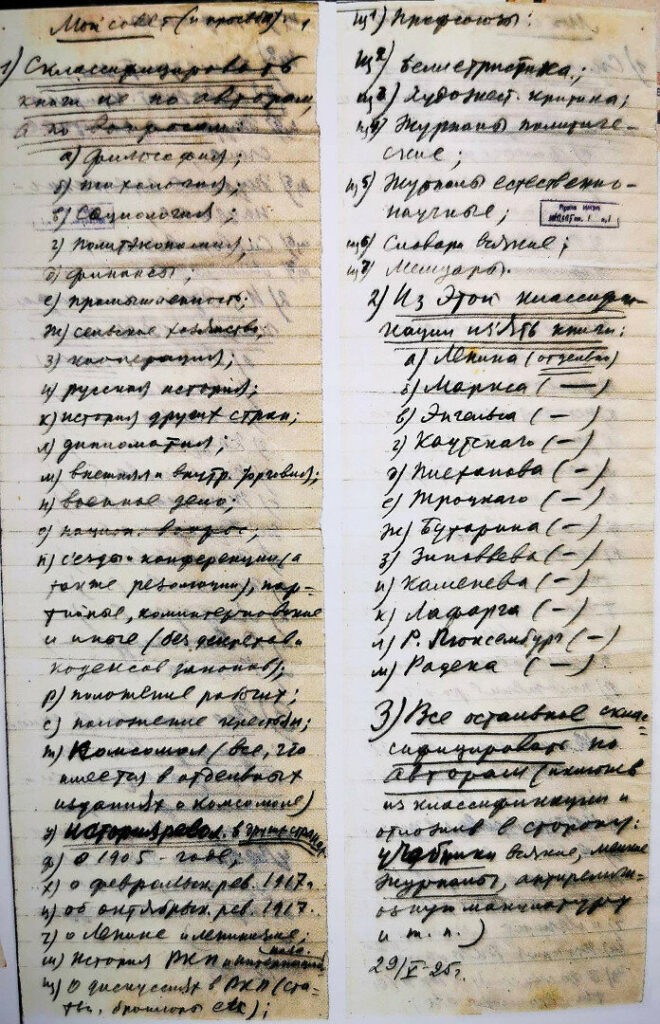 Мой совет (и просьба):
1) Склассифицировать
книги не по авторам,
а по вопросам:
а) философия;
б) психология;
в) социология;
г) политэкономия;
д) финансы;
е) промышленность;
ж) сельское хозяйство;
з) кооперация;
и) русская история;
к) история других стран;
л) дипломатия;
м) внешняя и внутр. торговля;
н) военное дело;
о) национ. вопрос;
п) съезды и конференции (а
также резолюции), пар-
тийные, коминтерновские
и иные (без декретов и
кодексов законов);
р) положение рабочих;
с) положение крестьян;
т) Комсомол (все, что
имеется в отдельных
изданиях о комсомоле)
у) история револ. в других странах
ф) о 1905 годе;
х) о февральск. рев. 1917 г.
ц) об октябрьск. рев. 1917 г.
ч) о Ленине и ленинизме;
ш) История РКП и интернационала
щ) О дискуссиях в РКП (ста-
тьи, брошюры);
щ1) Профсоюзы:
щ2) беллетристика;
щ3) Художест. критика;
щ4) Журналы политиче-
ские;
щ5) Журналы естественно-
научные;
щ6) Словари всякие;
щ7) Мемуары.
2) Из этой классифи-
кации изъять книги:
а) Ленина (отдельно)
б) Маркса (—)
в) Энгельса (—)
г) Каутского (—)
д) Плеханова (—)
е) Троцкого (—)
ж) Бухарина (—)
з) Зиновьева (—)
и) Каменева (—)
к) Лафарга (—)
л) Р. Люксембург (—)
м) Радека (—)
3) Все остальное склас-
сифицировать по
авторам (исключив
из классификации и
отложив в сторону:
учебники всякие, мелкие
журналы, антирелиги-
озную макулатуру
и т. п.)
29/V-25 г.